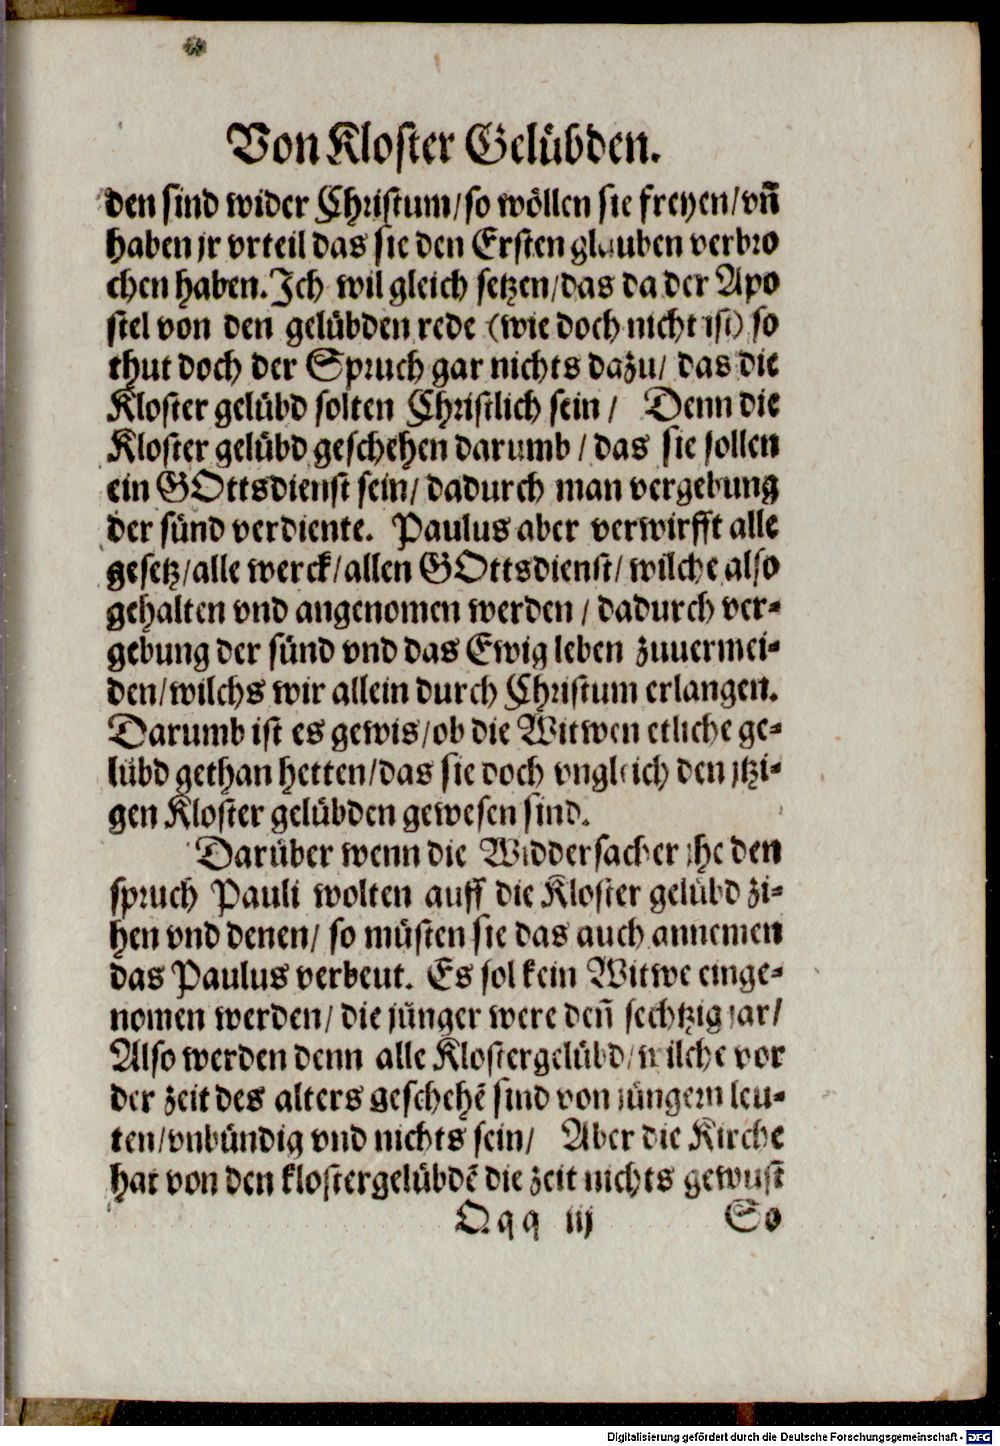 Von Kloster Gelübden.
den sind wider Christum/so wöllen sie freyen/vñ
haben jr vrteil das sie den Ersten glauben verbro
chen haben. Ich wil gleich setzen/das da der Apo
stel von den gelübden rede (wie doch nicht ist) so
thut doch der Spruch gar nichts dazu/ das die
Kloster gelübd solten Christlich sein/ Denn die
Kloster gelübd geschehen darumb/das sie sollen
ein GOttsdienst sein/dadurch man vergebung
der sünd verdiente. Paulus aber verwirfft alle
gesetz/alle werck/allen GOttsdienst/wilche also
gehalten vnd angenomen werden/dadurch ver-
gebung der sünd vnd das Ewig leben zuuermei-
den/wilchs wir allein durch Christum erlangen.
Darumb ist es gewis/ob die Witwen etliche ge-
lübd gethan hetten/das sie doch vngleich den jtzi-
gen Kloster gelübden gewesen sind.
Darüber wenn die Widdersacher jhe den
spruch Pauli wolten auff die Kloster gelübd zi-
hen vnd denen/ so müsten sie das auch annemen
das Paulus verbeut. Es sol kein Witwe einge-
nomen werden/die jünger were deñ sechtzig jar/
Also werden denn alle Klostergelübd/wilche vor
der zeit des alters geschehẽ sind von jüngern leu-
ten/vnbündig vnd nichts sein/ Aber die Kirche
hat von den klostergelübdẽ die zeit nichts gewust
Qqq iij So
Digitalisierung gefördert durch die Deutsche Forschungsgemeinschaft - DFG